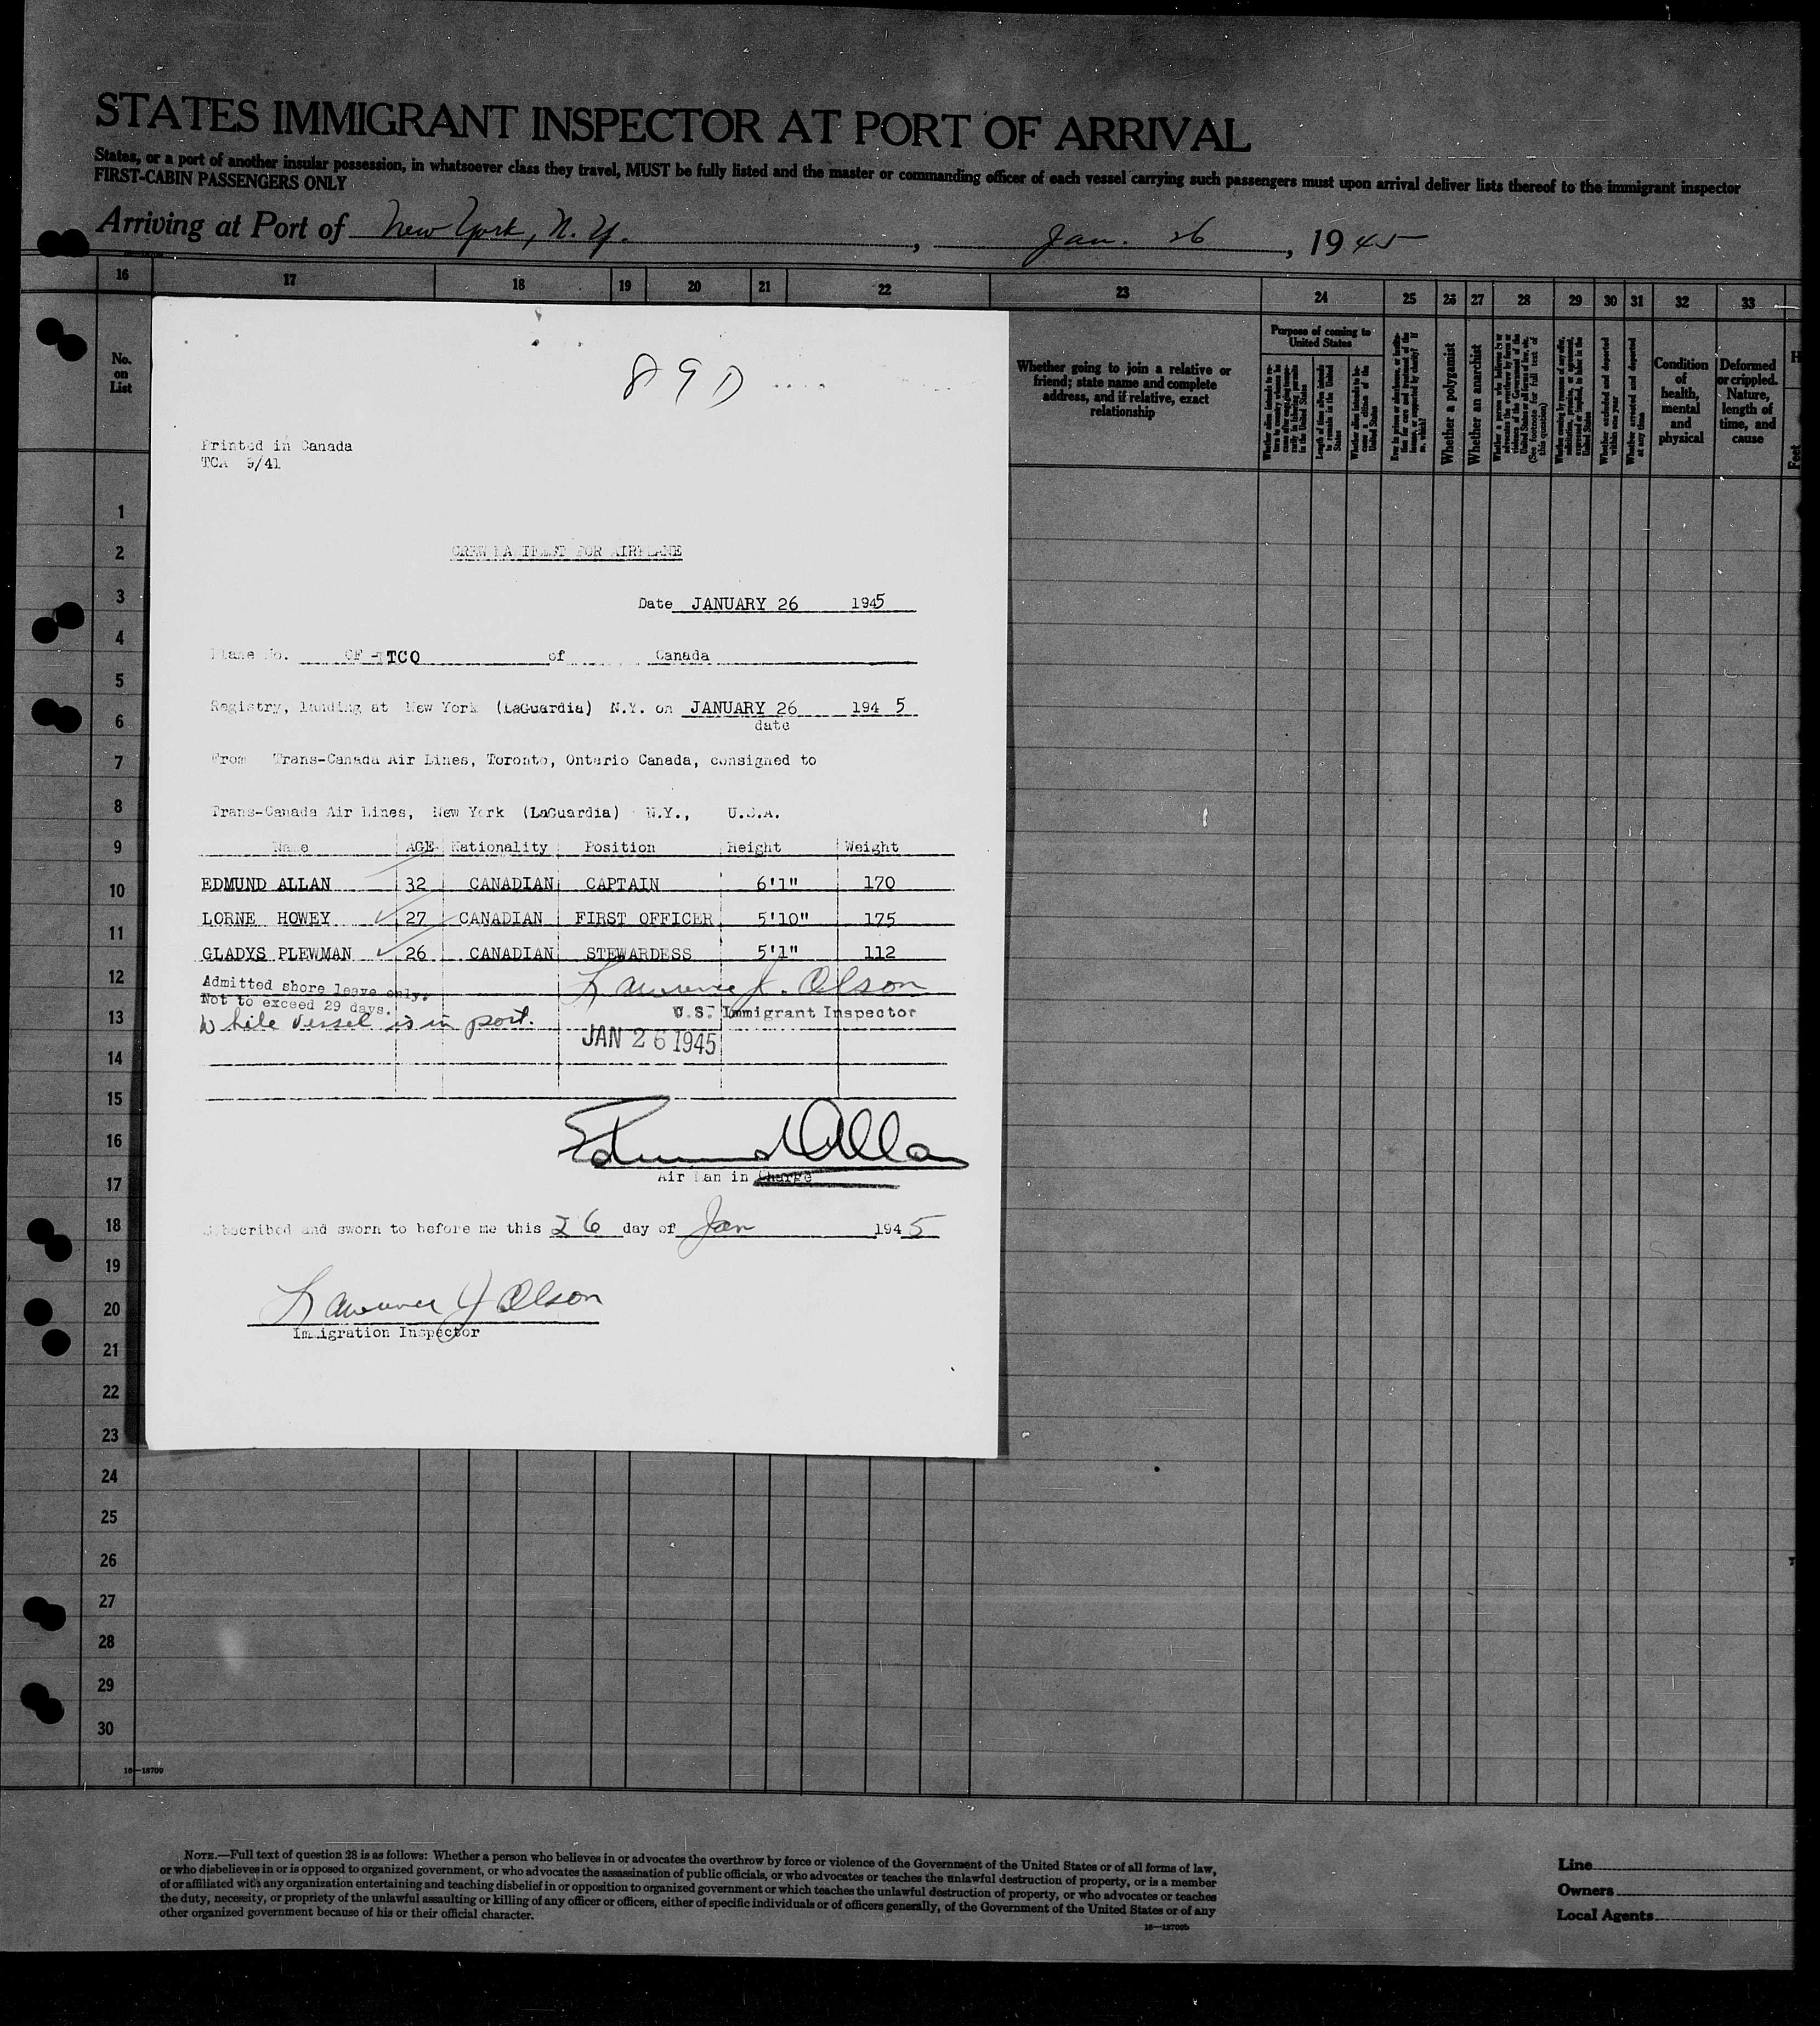 STATES IMMIGRANT INSPECTOR AT PORT OF ARRIVAL
States, or a port of another insular possession, in whatsoever class they travel, MUST be fully listed and the master or commanding officer of each vessel carrying such passengers must upon arrival deliver lists thereof to the immigrant inspector
FIRST-CABIN PASSENGERS ONLY
Arriving at Port of New York, N. Y. , Jan. 26 , 1945
16 17 18 19 20 21 22 23 24 25 26 27 28 29 30 31 32 33
No.
on
List
Whether going to join a relative or
friend; state name and complete
address, and if relative, exact
relationship
Purpose of coming to
United States
Whether a polygamist
Whether an anarchist
(See footnote for full text of
this question)
Whether excluded and deported
within one year
Whether arrested and deported
at any time
Condition
of
health,
mental
and
physical
Deformed
or crippled.
Nature,
length of
time, and
cause
Feet
89D
Printed in Canada
TCA 9/41
CREW MANIFEST FOR AIRPLANE
Date JANUARY 26 1945
Plane No. CF-TCO of Canada
Registry, landing at New York (LaGuardia) N.Y. on JANUARY 26 1945
date
From Trans-Canada Air Lines, Toronto, Ontario Canada, consigned to
Trans-Canada Air Lines, New York (LaGuardia) N.Y., U.S.A.
Name AGE Nationality Position Height Weight
EDMUND ALLAN 32 CANADIAN CAPTAIN 6'1" 170
LORNE HOWEY 27 CANADIAN FIRST OFFICER 5'10" 175
GLADYS PLEWMAN 26 CANADIAN STEWARDESS 5'1" 112
Admitted shore leave only.
Not to exceed 29 days.
While vessel is in port.
Lawrence J. Olson
U.S. Immigrant Inspector
JAN 26 1945
Edmund Allan
Air Man in Charge
Subscribed and sworn to before me this 26 day of Jan 1945
Lawrence J Olson
Immigration Inspector
1
2
3
4
5
6
7
8
9
10
11
12
13
14
15
16
17
18
19
20
21
22
23
24
25
26
27
28
29
30
16—18709
NOTE.—Full text of question 28 is as follows: Whether a person who believes in or advocates the overthrow by force or violence of the Government of the United States or of all forms of law,
or who disbelieves in or is opposed to organized government, or who advocates the assassination of public officials, or who advocates or teaches the unlawful destruction of property, or is a member
of or affiliated with any organization entertaining and teaching disbelief in or opposition to organized government or which teaches the unlawful destruction of property, or who advocates or teaches
the duty, necessity, or propriety of the unlawful assaulting or killing of any officer or officers, either of specific individuals or of officers generally, of the Government of the United States or of any
other organized government because of his or their official character.
16—18709b
Line
Owners
Local Agents